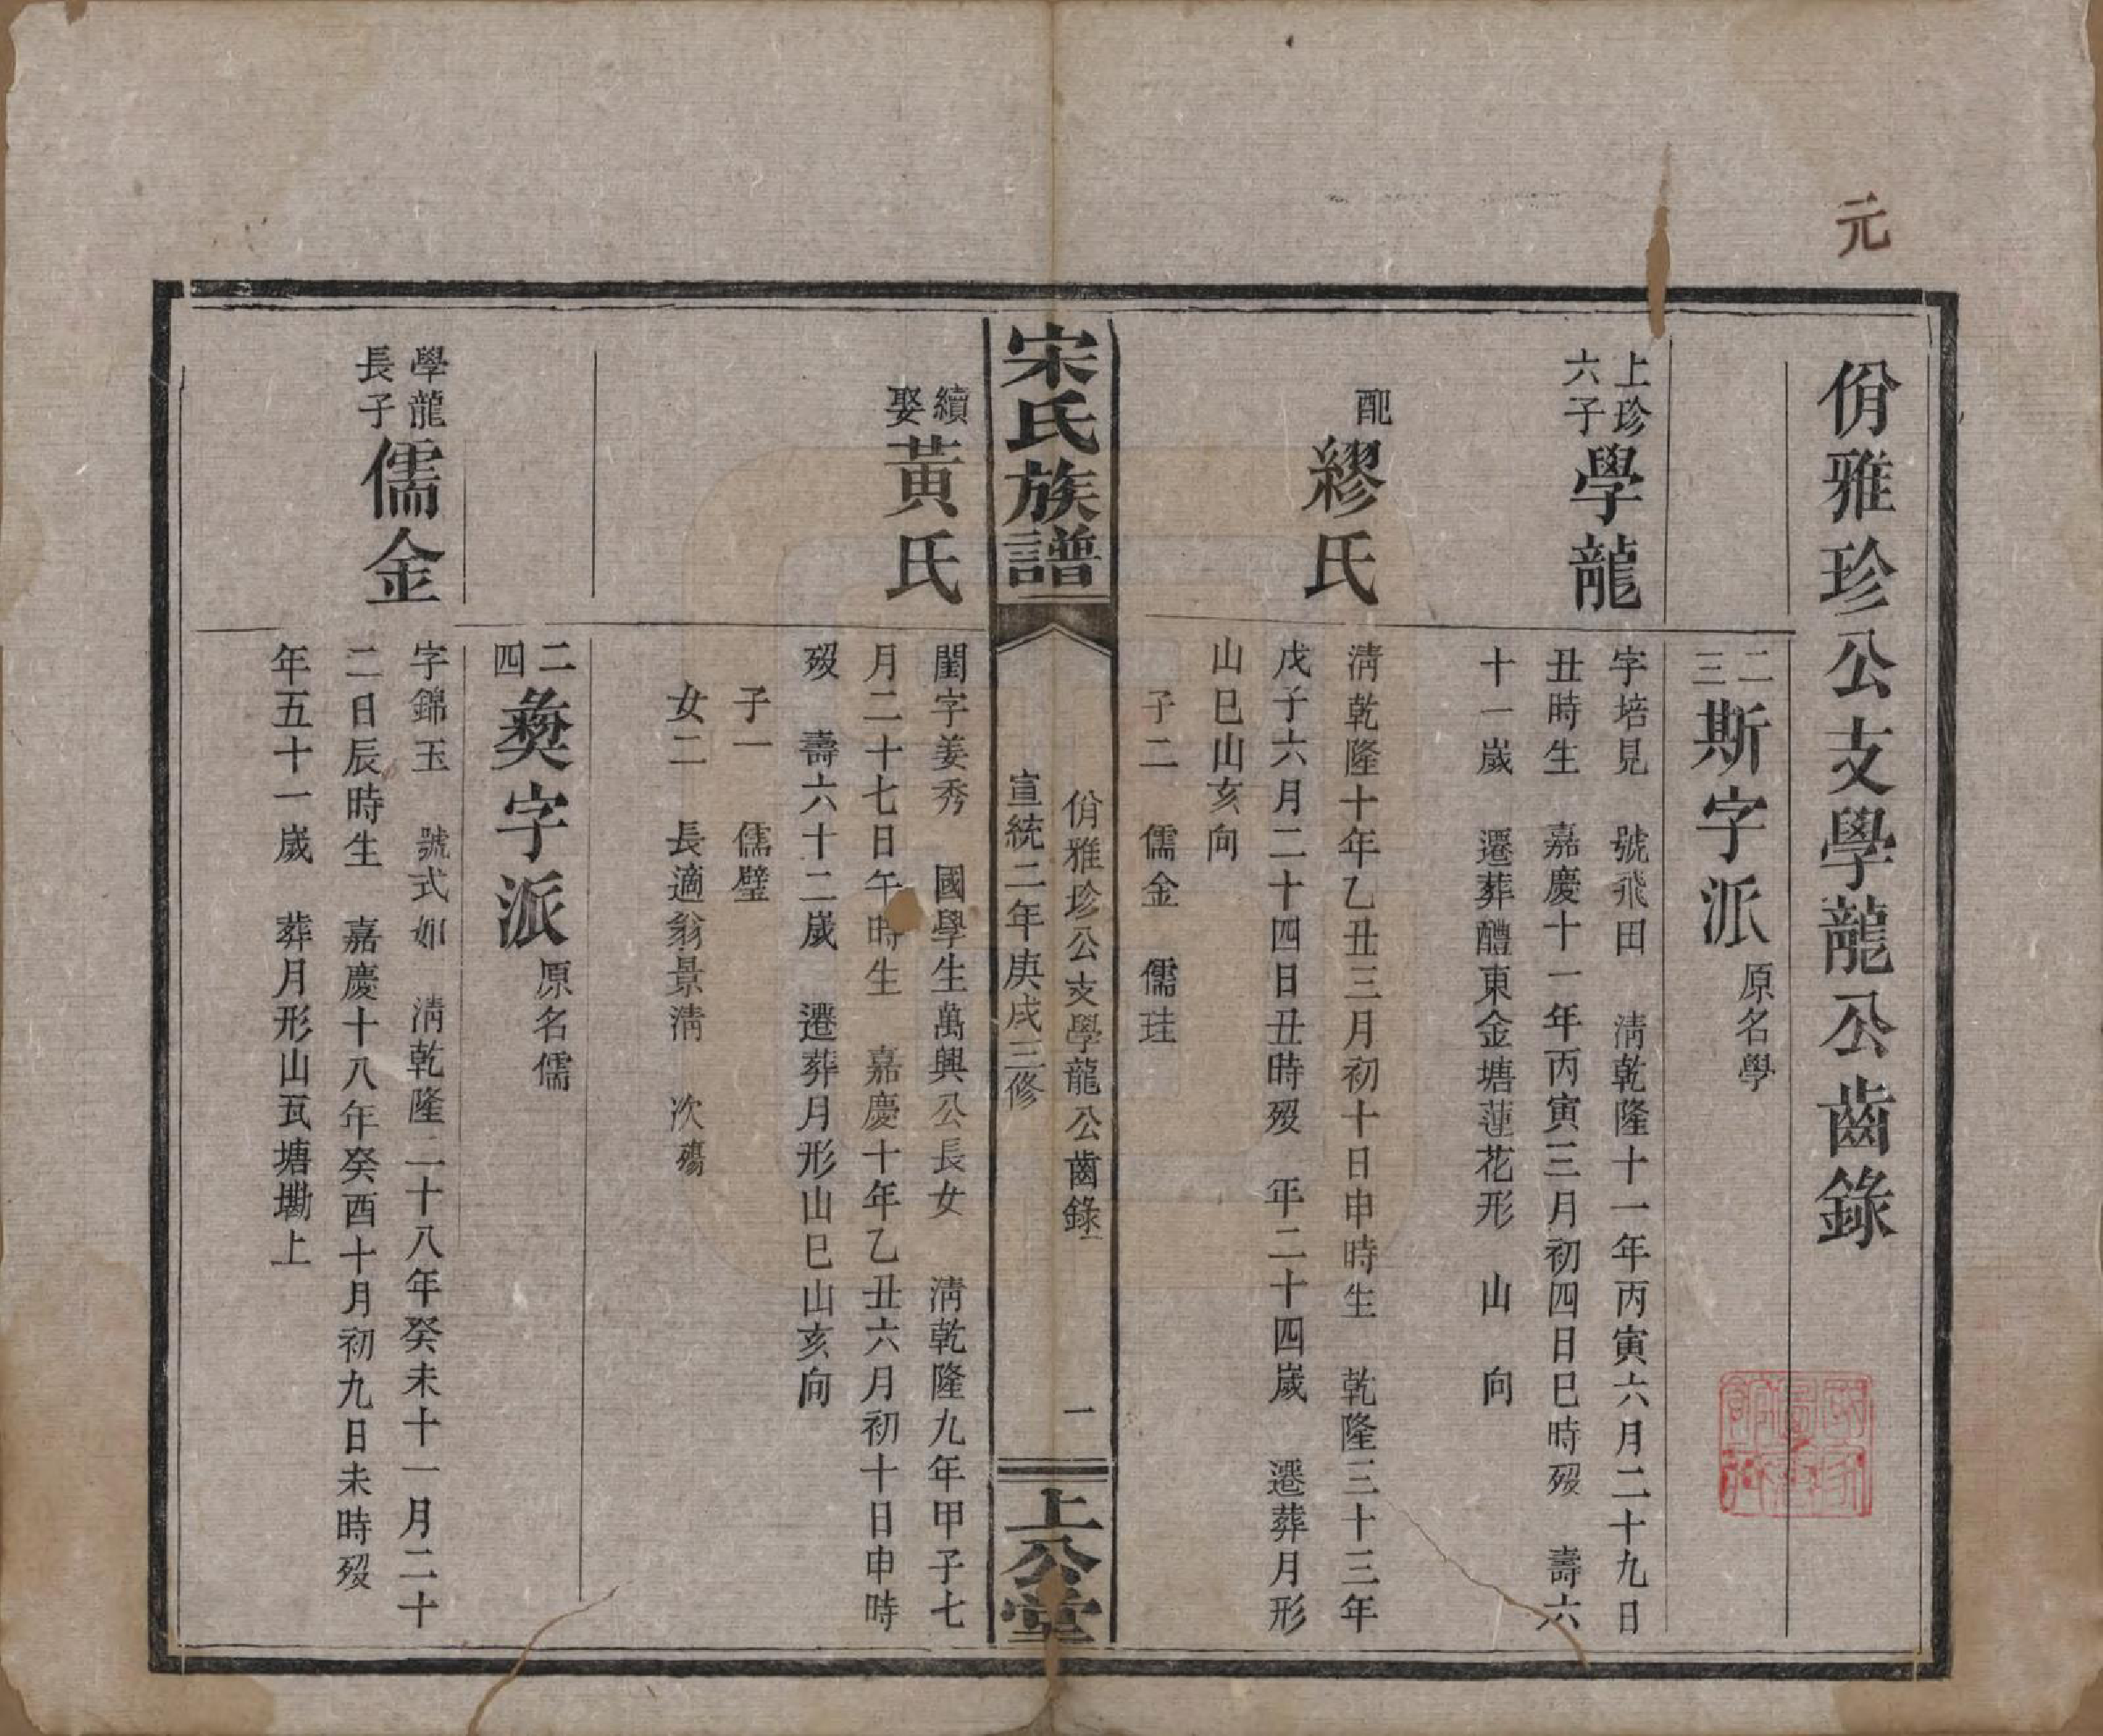 元
佾雅珍公支學龍公齒錄
二三斯字派原名學
上珍六子學龍
字培見 號飛田 淸乾隆十一年丙寅六月二十九日
丑時生 嘉慶十一年丙寅三月初四日巳時歿 壽六
十一歲 遷葬醴東金塘蓮花形 山 向
配繆氏
淸乾隆十年乙丑三月初十日申時生 乾隆三十三年
戊子六月二十四日丑時歿 年二十四歲 遷葬月形
山巳山亥向
子二 儒金 儒珪
宋氏族譜
佾雅珍公支學龍公齒錄
宣統二年庚戌三修
一
上公堂
續娶黃氏
閨字姜秀 國學生萬興公長女 淸乾隆九年甲子七
月二十七日午時生 嘉慶十年乙丑六月初十日申時
歿 壽六十二歲 遷葬月形山巳山亥向
子一 儒璧
女二 長適翁景淸 次殤
二四彝字派原名儒
學龍長子儒金
字錦玉 號式如 淸乾隆二十八年癸未十一月二十
二日辰時生 嘉慶十八年癸酉十月初九日未時歿
年五十一歲 葬月形山瓦塘墈上